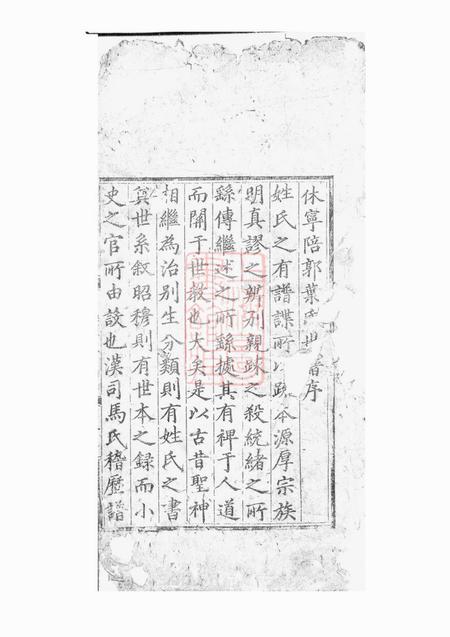 休寧陪郭葉氏世譜序
姓氏之有譜諜所以疏本源厚宗族
明真謬之辨别親疎之殺統緒之所
繇傳繼述之所繇據其有裨于人道
而關于世教也大矣是以古昔聖神
相繼為治别生分類則有姓氏之書
奠世系叙昭穆則有世本之録而小
史之官所由設也漢司馬氏稽歷譜